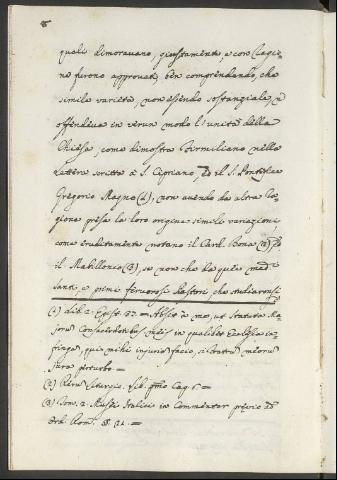 8
quali dimoravano, giustamente, e con ragio=
ne furono approvate, ben comprendendo, che
simile varietà, non essendo sostanziale, 
offendeva in verun modo l'unità della
Chiesa, come dimostra Firmiliano nella
lettera scritta a S. Cipriano, ed il S. Pontefice
Gregorio Magno (1), non avendo da altra ca=
gione presa la loro origine simili variazioni,
come eruditamente notano il Card. Bona (2), ed
il Mabillonio (3), se non che da quei medesi
santi, e primi fervorosi Pastori, che studiaronsi
(1) Lib. 2. Epist. 37. = Absit a me, ut Statuta Ma
jorum Consacerdotibus meis in qualibet Ecclesia in=
fringam, quia mihi injuriam facio, si fratrum meorum
jura perturbo =
(2) Rerum Liturgic. Lib. primo Cap. 6 =
(3) Tom. 2. Musei Italici in Commentar. prævio ad
Ord. Rom. §. 21. =